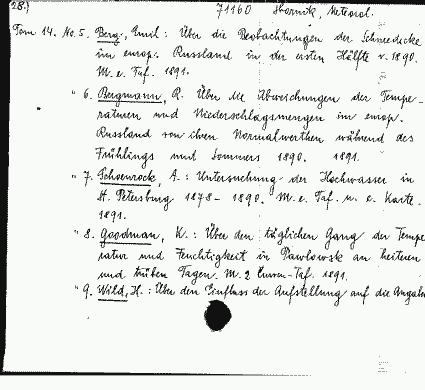 28.) 71160 Sbornik, Meteorol.
Tom 14. No. 5. Berg, Emil: Über die Beobachtungen der Schneedecke
im europ. Russland in der ersten Hälfte v. 1890.
M. e. Taf. 1891.
" 6. Bergmann, R. Über die Abweichungen der Tempe-
raturen und Niederschlagsmengen im europ.
Russland von ihren Normalwerthen während des
Frühlings und Sommers 1890. 1891.
" 7. Schoenrock, A.: Untersuchung der Hochwasser in
St. Petersburg 1878-1890. M. e. Taf. u. e. Karte.
1891.
" 8. Goodman, K.: Über den täglichen Gang der Tempe
ratur und Feuchtigkeit in Pawlowsk an heiteren
und trüben Tagen. M. 2 Curven-Taf. 1891.
" 9. Wild, H.: Über den Einfluss der Aufstellung auf die Angabe